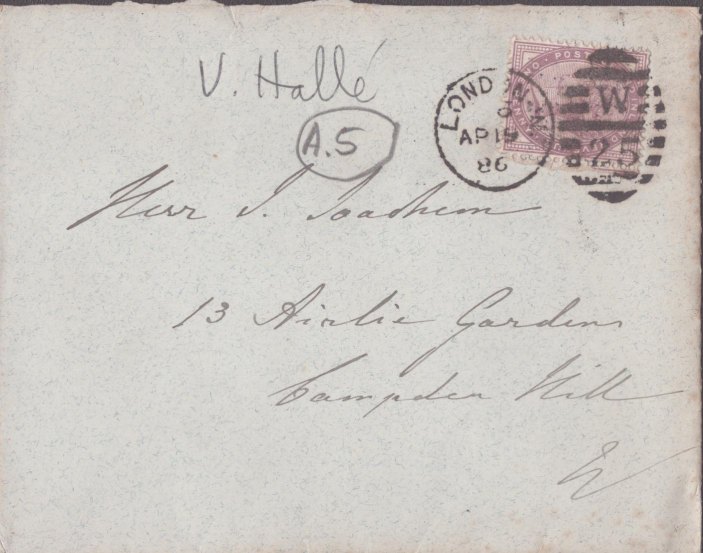 V. Hallé
A.5
LONDON. W
AP 15
86
W
25
POST
Herr J. Joachim
13 Airlie Gardens
Campden Hill
W